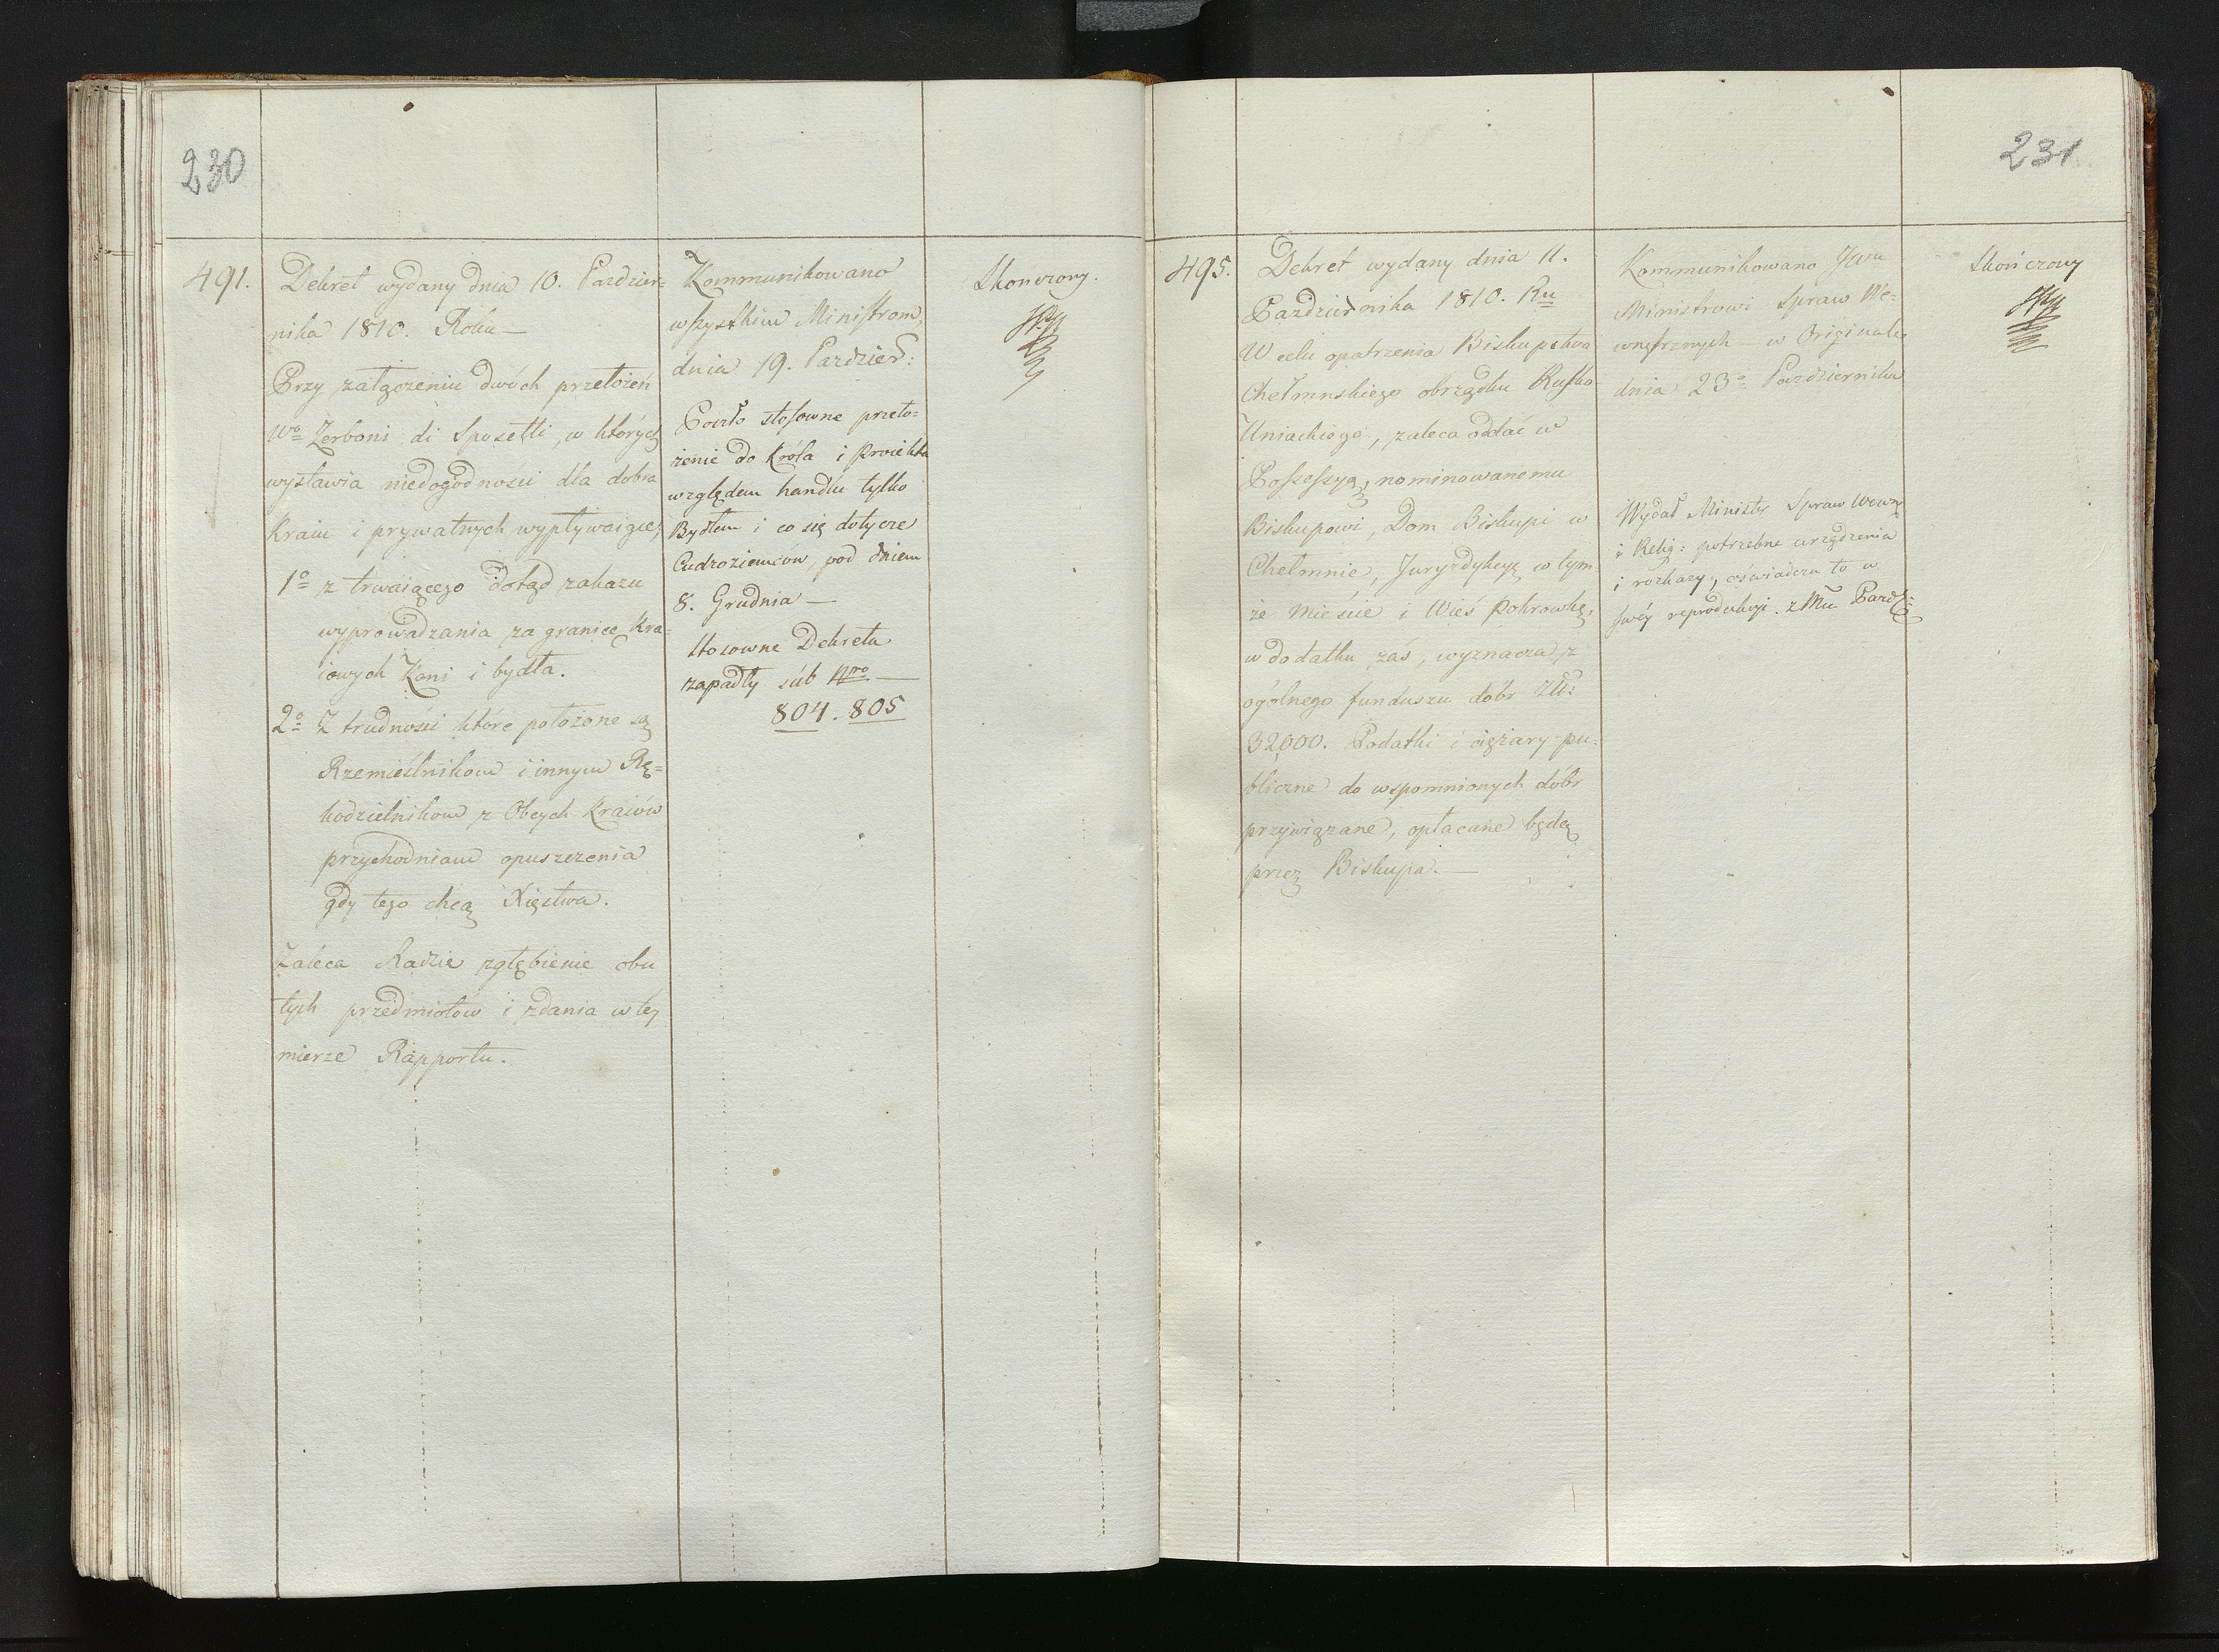 230
491.
Dekret wydany dnia 10. Pazdzier=
nika 1810. Roku —
Przy załączeniu dwóch przełożeń
Wo Zerboni di Sposetti, w których
wystawia niedogodności dla dobra
Kraiu i prywatnych wypływaiące,
1o z trwaiącego dotąd zakazu
wyprowadzania za granicę Kra=
iowych Koni i bydła.
2o Z trudności które położone są
Rzemieślnikom i innym Rę=
kodzielnikom z Obcych Kraiów
przychodniom opuszczenia
gdy tego chcą Xięstwa.
Zaleca Radzie zgłębienie obu
tych przedmiotow i zdania w tey
mierze Rapportu.
Kommunikowano
wszystkim Ministrom,
dnia 19. Pazdzier:
Poszło stosowne przeło=
żenie do Króla i Proiekta
względem handlu tylko
Bydłem i co się dotycze
Cudzoziemcow, pod dniem
8. Grudnia —
Stosowne Dekreta
zapadły sub Nro —
804. 805
Skonczony.
231
495.
Dekret wydany dnia 11.
Pazdziernika 1810. Ru
W celu opatrzenia Biskupstwa
Chełmnskiego obrządku Rusko
Uniackiego, zaleca oddać w
Possessyą, nominowanemu
Biskupowi, Dom Biskupi w
Chełmnie, Juryzdykcyę w tym=
że mieście i Wieś Pokrowkę,
w dodatku zaś, wyznacza z
ogólnego funduszu dóbr Zł:
32,000. Podatki i ciężary pu=
bliczne do wspomnionych dóbr
przywiązane, opłacane będą
przez Biskupa. —
Kommunikowano JWu
Ministrowi Spraw We=
wnętrznych w Originale
dnia 23o Pazdziernika
Wydał Minister Spraw Wewn:
i Relig: potrzebne urządzenia
i rozkazy, oświadcza to w
swéy reprodukcyi z Pazdz:
Skończony